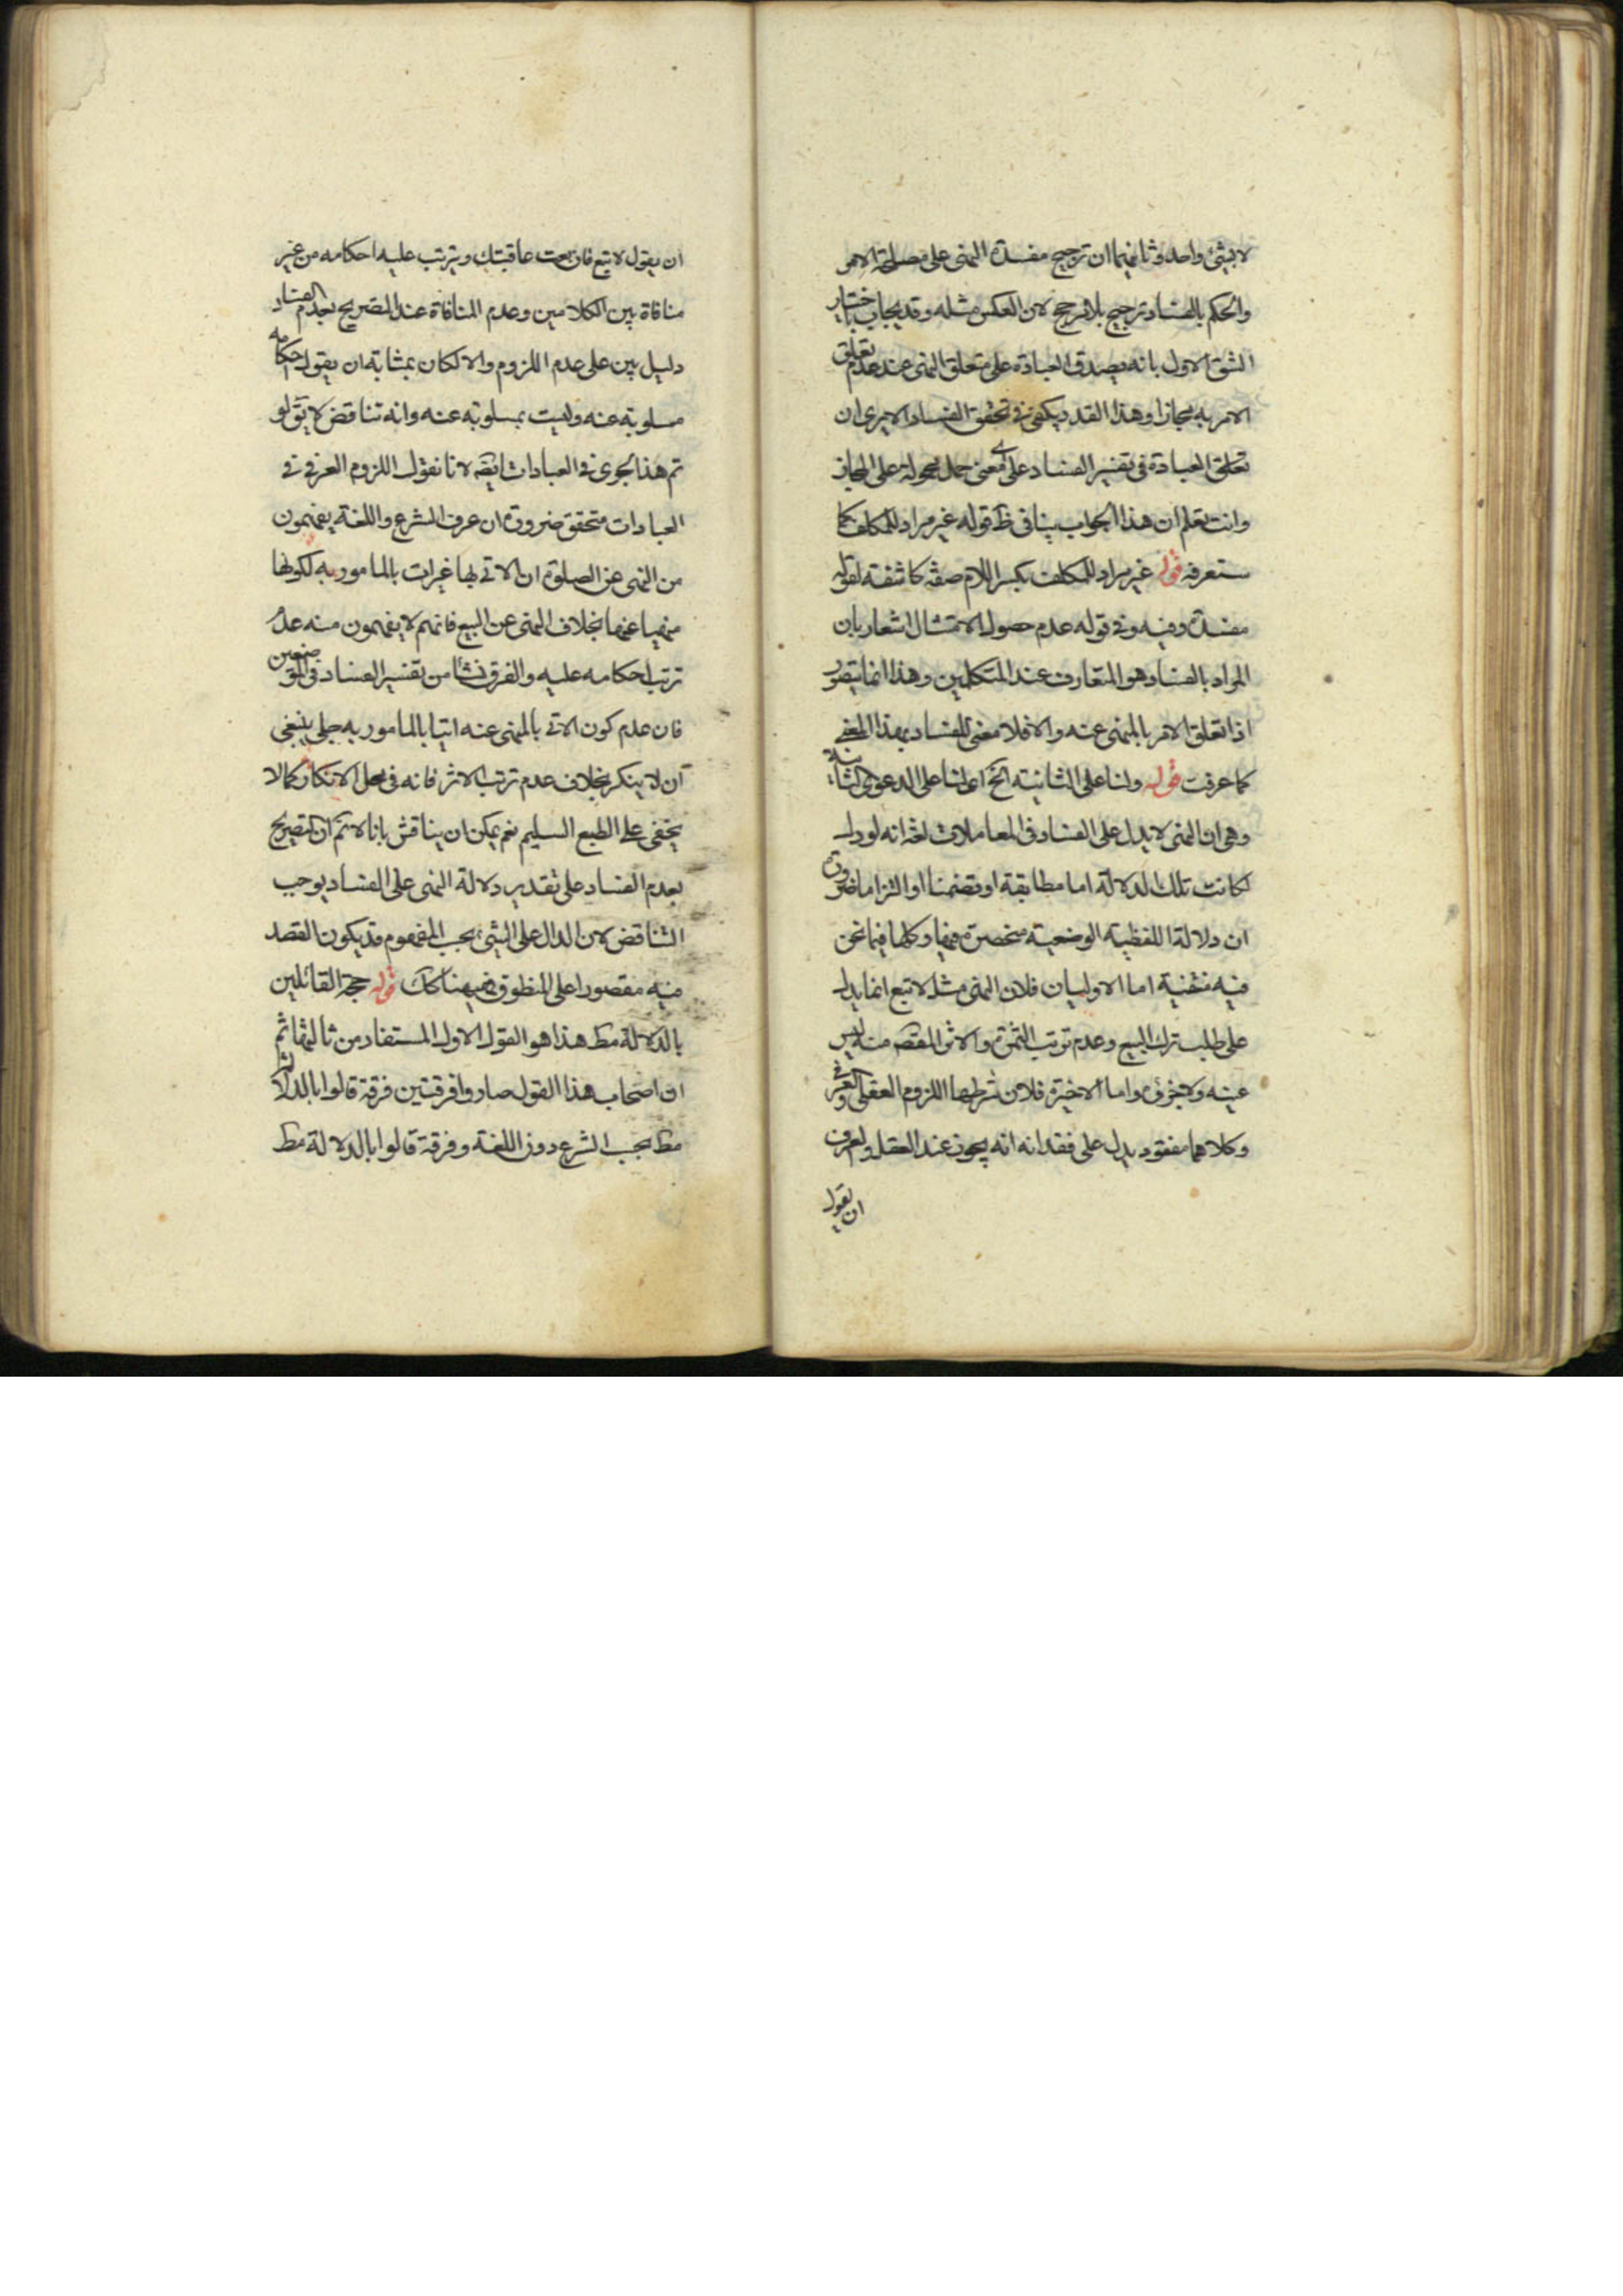 لا بشئ واحد وثانيهما ان ترجيح مفسدة النهى على مصلحة الامر
والحكم بالفساد ترجيح بلا مرجح لان العكس مثله وقد يجاب باختيار
الشق الاول بانه يصدق العبادة على متعلق النهى عند عدم تعلق
الامر به مجازا وهذا القدر يكفى فى تحقق الفساد الا يرى ان
تعلق العبادة فى تفسير الفساد على اى معنى حمل محمولة على المجاز
وانت تعلم ان هذا الجواب ينافى ظ قوله غير مراد للمكلف كما
ستعرفه قوله غير مراد للمكلف بكسر اللام صفة كاشفة لقوله
مفسدة وفيه وفى قوله عدم حصول الامتثال اشعار بان
المراد بالفساد هو المتعارف عند المتكلمين وهذا انما يتصور
اذا تعلق الامر بالمنهى عنه والا فلا معنى للفساد بهذا المعنى
كما عرفت قوله ولنا على الثانية الخ اى لنا على الدعوى الثانية
وهى ان النهى لا يدل على الفساد فى المعاملات لغة انه لو دل
لكانت تلك الدلالة اما مطابقة او تضمنا او التزاما ضرورة
ان دلالة اللفظية الوضعية منحصرة فيها وكلها فيما نحن
فيه منتفية اما الاوليان فلان النهى مثل لا تبع انما يدل
على طلب ترك البيع وعدم ترتب الثمرة والاثر المقصود منه ليس
عينه ولا جزئه واما الاخيرة فلان شرطها اللزوم العقلى او العرفى
وكلاهما مفقود يدل على فقدانه انه يجوز عند العقل والعرف
ان يقول
ان يقول لا تبع فان بعت عاقبتك ويترتب عليه احكامه من غير
منافاة بين الكلامين وعدم المنافاة عند التصريح بعدم الفساد
دليل بين على عدم اللزوم والا لكان بمثابة ان يقول احكامه
مسلوبة عنه وليست بمسلوبة عنه وانه تناقض لا يق لو
تم هذا لجرى فى العبادات ايضا لانا نقول اللزوم العرفى فى
العبادات متحقق ضرورة ان عرف الشرع واللغة يفهمون
من النهى عن الصلوة ان الاتى بها غير ات بالمامور به لكونها
منهيا عنها بخلاف النهى عن البيع فانهم لا يفهمون منه عدم
ترتب احكامه عليه والفرق نشا من تفسير الفساد فى الموضعين
فان عدم كون الاتى بالمنهى عنه اتيا بالمامور به جلى ينبغى
ان لا ينكر بخلاف عدم ترتب الاثر فانه فى محل الانكار كما لا
يخفى على الطبع السليم نعم يمكن ان يناقش بانا لا نم ان التصريح
بعدم الفساد على تقدير دلالة النهى على الفساد يوجب
التناقض لان الدال على الشئ بحسب المفهوم قد يكون القصد
منه مقصورا على المنطوق فليكن هنا كك قوله حجة القائلين
بالدلالة مط هذا هو القول الاول المستفاد من ثالثها ثم
ان اصحاب هذا القول صاروا فرقتين فرقة قالوا بالدلالة
مط بحسب الشرع دون اللغة وفرقة قالوا بالدلالة مط